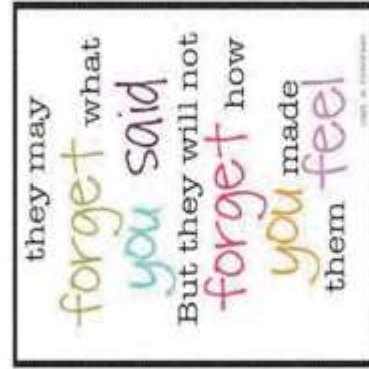 they may
forget what
you said
But they will not
forget how
you made
them feel